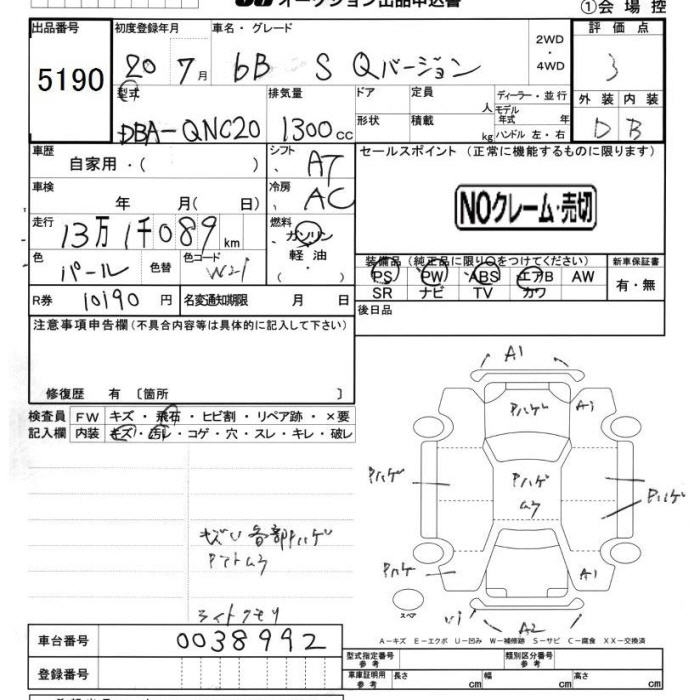 オークション出品申込書
①会場控
出品番号
5190
初度登録年月
20 7月
車名・グレード
bB S Qバージョン
2WD
・
4WD
評価点
3
外装 内装
D B
型式
DBA-QNC20
排気量
1300cc
ドア
形状
定員 人
積載 kg
ディーラー・並行
モデル年式 年
ハンドル 左・右
車歴
自家用・( )
シフト
AT
セールスポイント (正常に機能するものに限ります)
NOクレーム・売切
車検
年 月( 日)
冷房
AC
走行
13万1千089km
燃料
ガソリン
軽油
色
パール
色替
色コード
W21
装備品 (純正品に限り○をつけてください)
PS PW ABS エアB AW
SR ナビ TV カワ
新車保証書
有・無
R券 10190円
名変通知期限 月 日
後日品
注意事項申告欄(不具合内容等は具体的に記入して下さい)
修復歴 有 〔箇所 〕
検査員
記入欄
FW キズ・飛石・ヒビ割・リペア跡・×要
内装 キズ・汚レ・コゲ・穴・スレ・キレ・破レ
A1
Pハゲ
A1
Pハゲ
Pハゲ
ムラ
Pハゲ
Pハゲ
A1
A2
スペア
キズい各部Pハゲ
Pアトムラ
ライトクモリ
A−キズ E−エクボ U−凹み W−補修跡 S−サビ C−腐食 XX−交換済
車台番号
0038992
登録番号
型式指定番号
参考
類別区分番号
参考
車庫証明用
参考
長さ cm
幅 cm
高さ cm